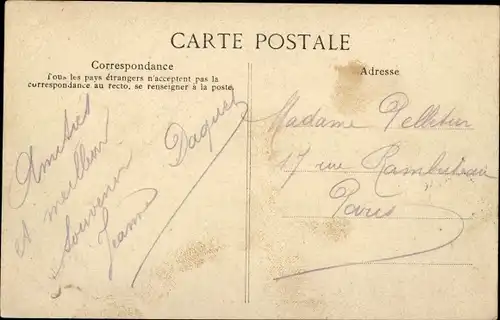 CARTE POSTALE
Correspondance
Tous les pays étrangers n'acceptent pas la
correspondance au recto, se renseigner à la poste.
Adresse
Amitiés
et meilleur
souvenir
Jeanne Daquet
Madame Pelletier
17 rue Rambuteau
Paris